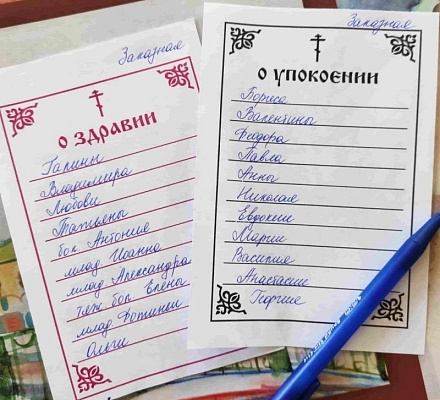 Заказная
О ЗДРАВИИ
Галины
Владимира
Любови
Татьяны
бол Антония
млад Иоанна
млад Александра
тяж бол Елены
млад Фотинии
Ольги
Заказная
О УПОКОЕНИИ
Бориса
Валентины
Феодора
Павла
Анны
Николая
Евдокии
Марии
Василия
Анастасии
Георгия